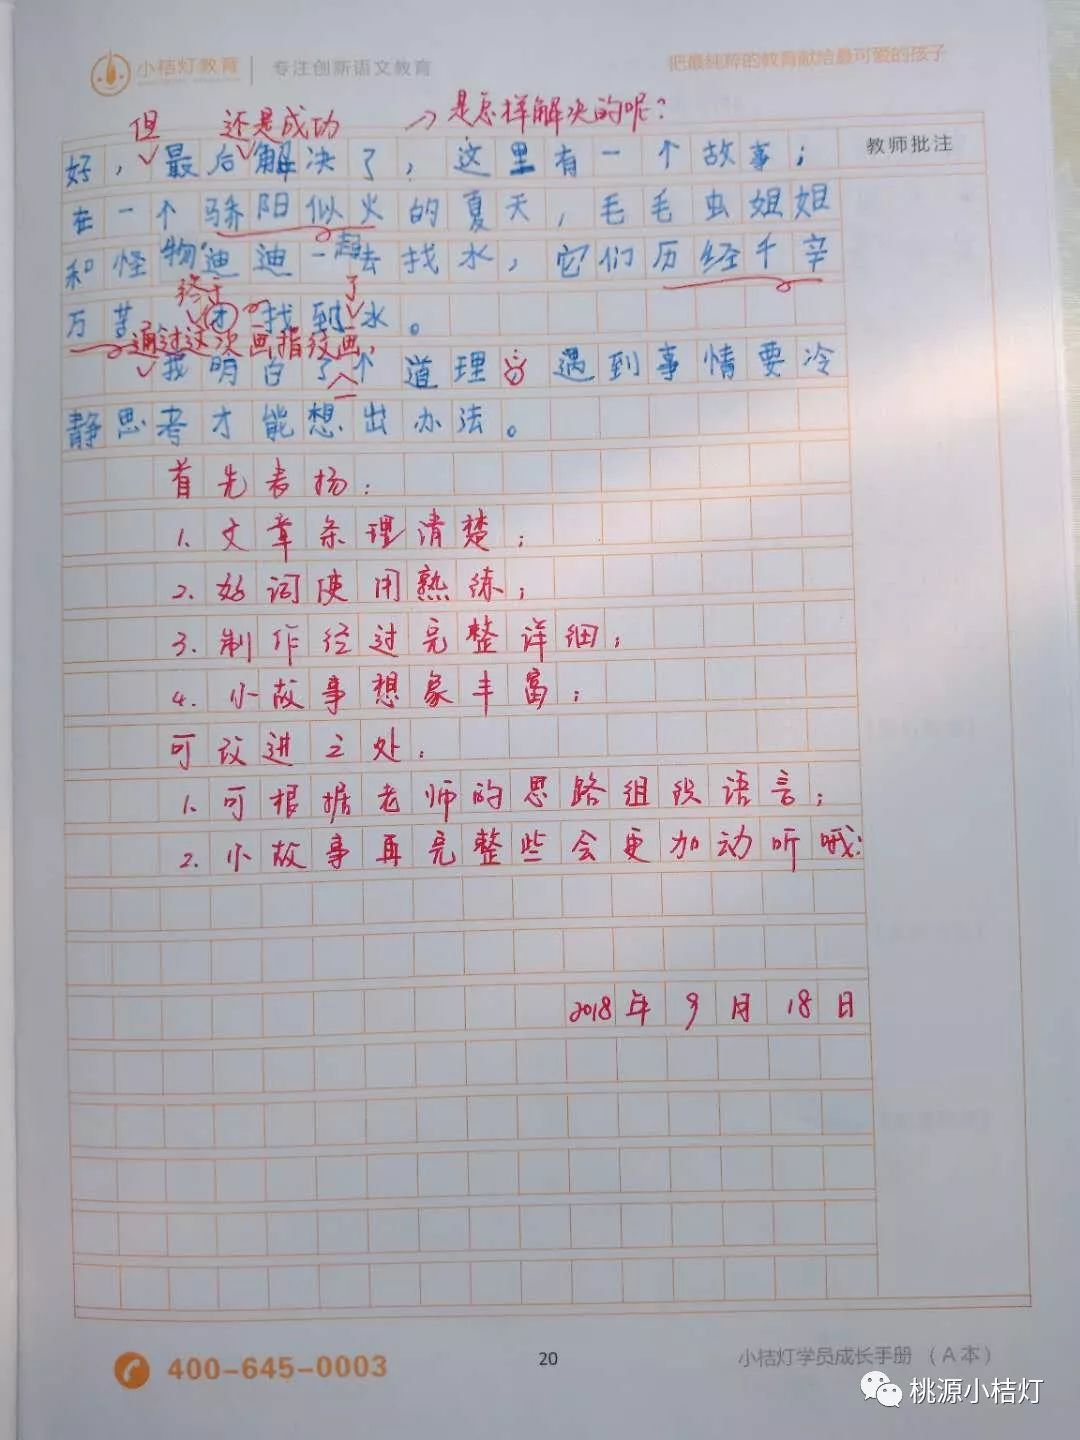 小桔灯教育 专注创新语文教育 把最纯粹的教育献给最可爱的孩子
但 还是成功 是怎样解决的呢？
好，最后解决了，这里有一个故事；
教师批注
在一个骄阳似火的夏天，毛毛虫姐姐
和怪物迪迪一起去找水，它们历经千辛
终于 了
万苦才找到水。
通过这次画指纹画，
我明白了个道理：遇到事情要冷
一
静思考才能想出办法。
首先表扬：
1.文章条理清楚；
2.好词使用熟练；
3.制作经过完整详细；
4.小故事想象丰富；
可改进之处：
1.可根据老师的思路组织语言；
2.小故事再完整些会更加动听哦！
2018年9月18日
400-645-0003 20 小桔灯学员成长手册（A本）
桃源小桔灯